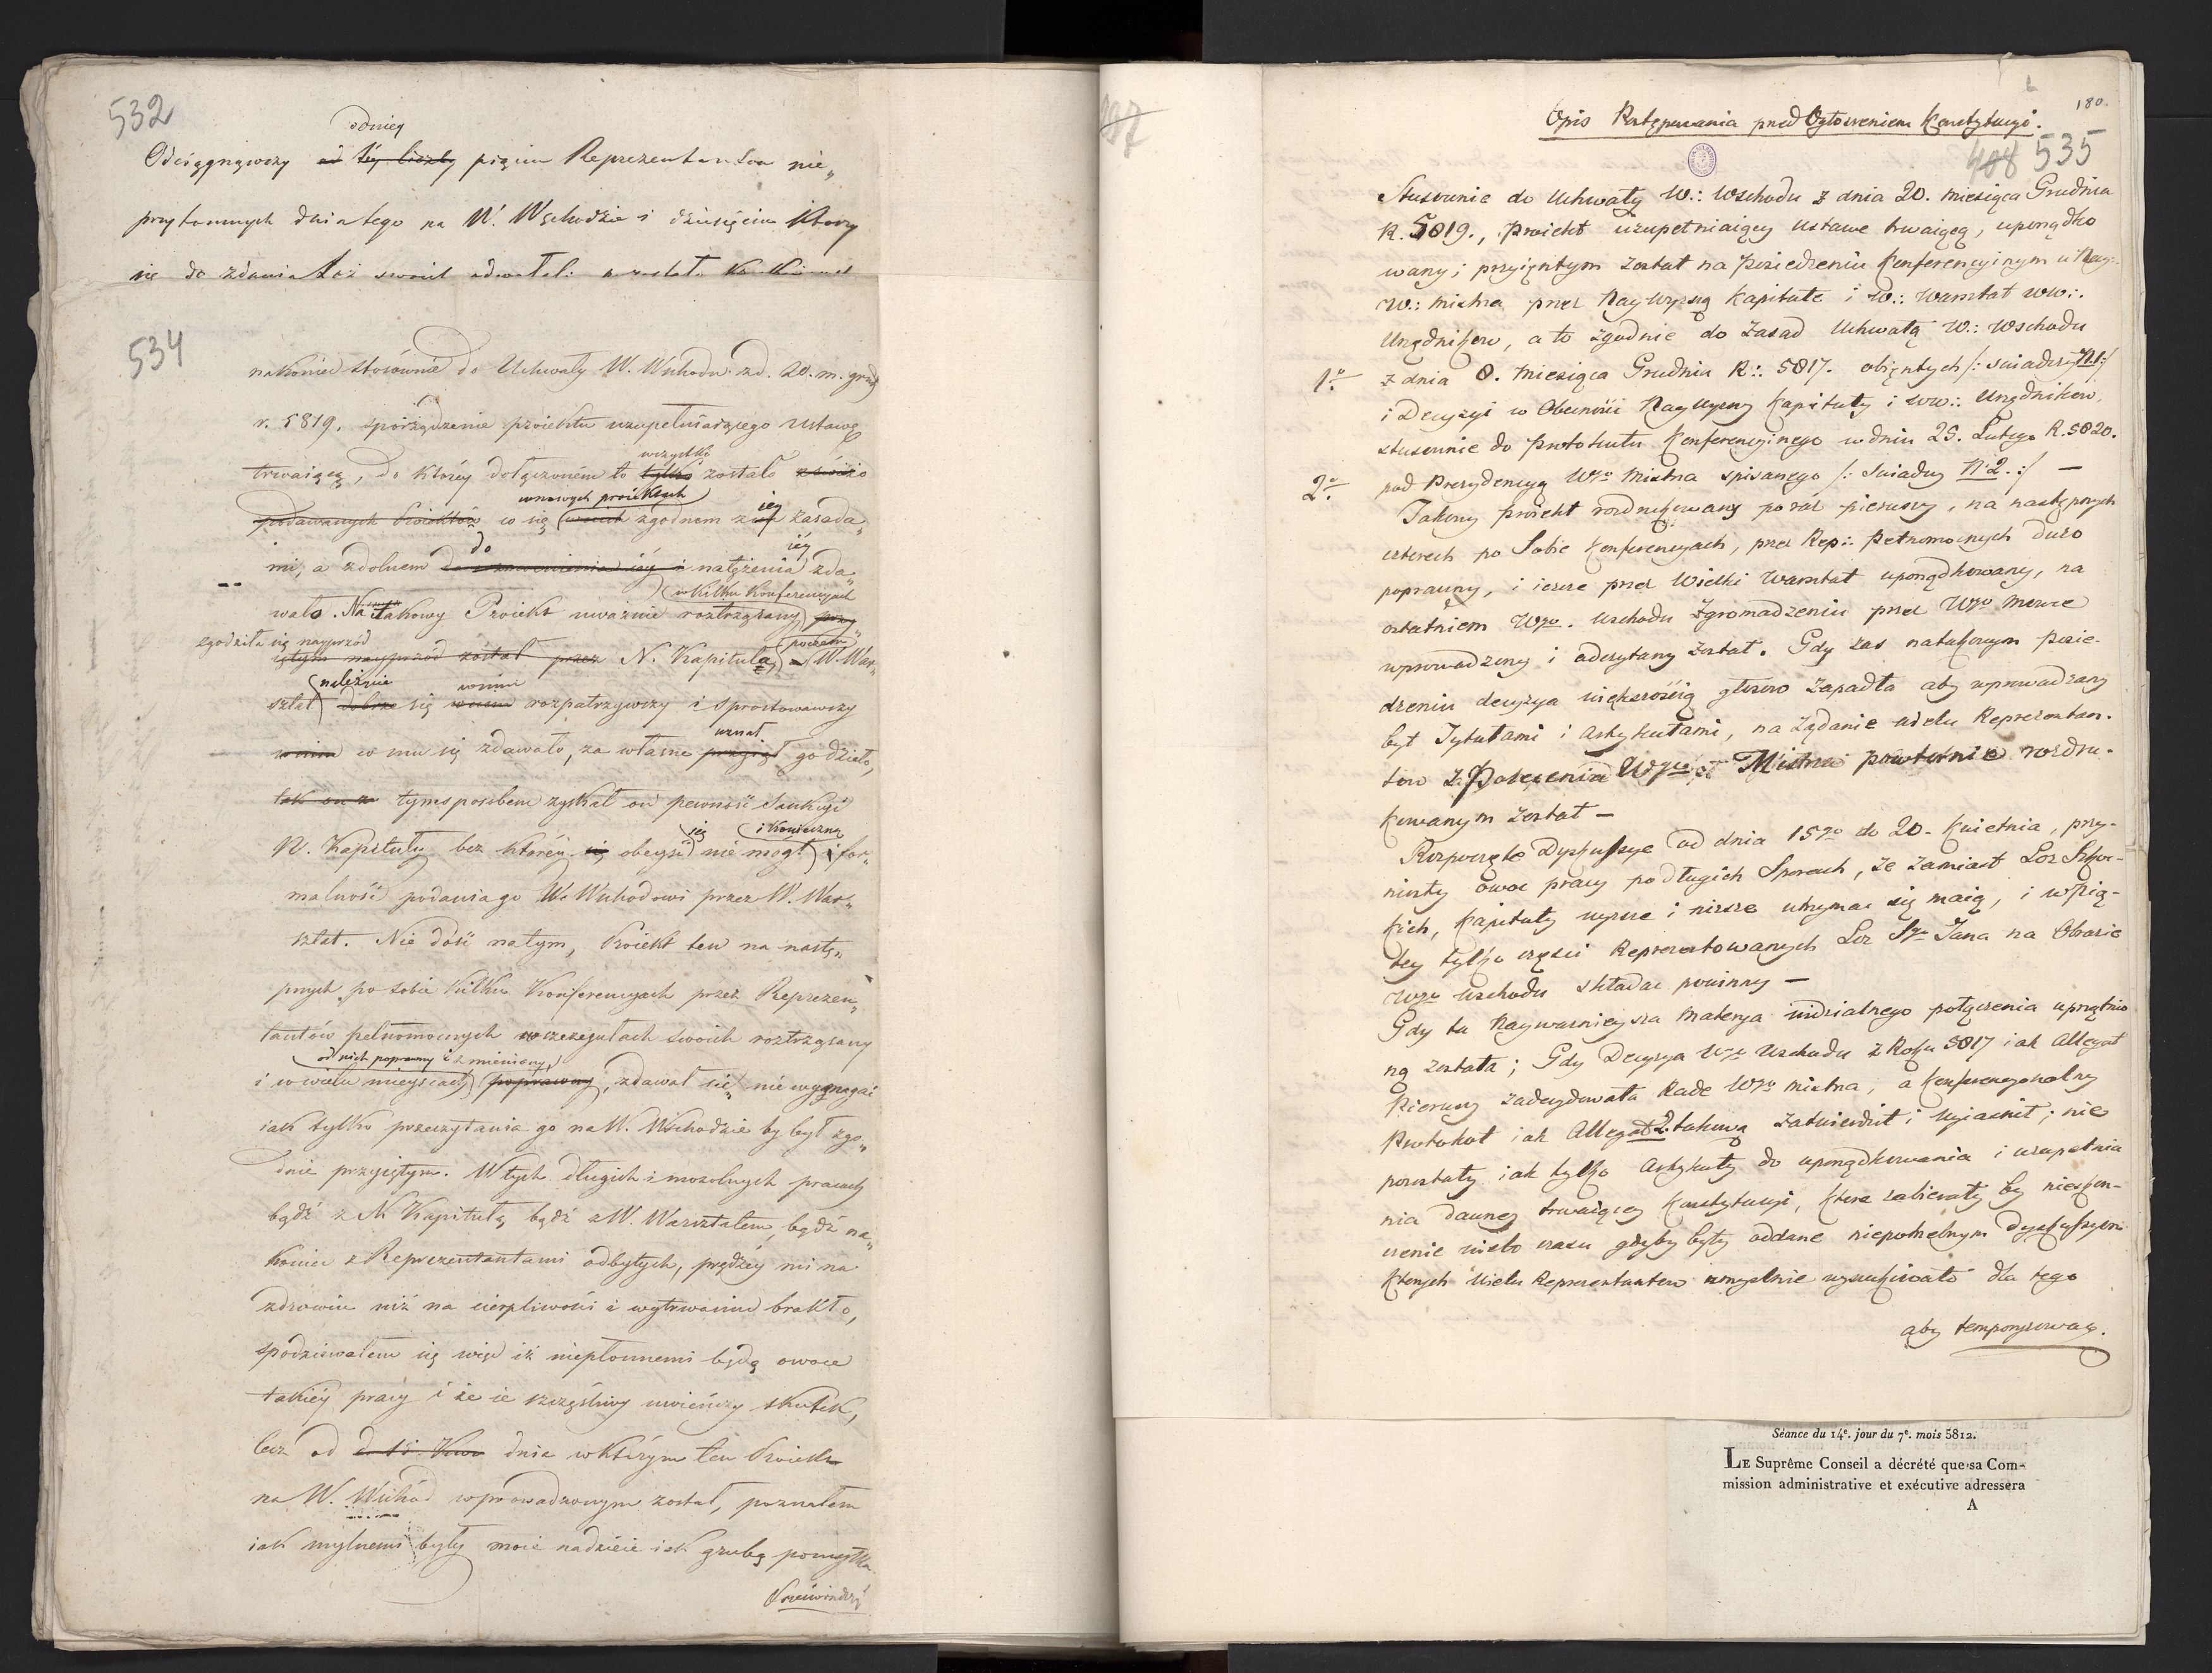 532
odniey
Odciągnąwszy od téy liczby pięciu Reprezentantów nie„
przytomnych dnia tego na W. Wschodzie i dziesięciu którzy
nie do zdania Loż swoich
534
nakoniec stosównie do Uchwały W. Wschodu z d. 20. m. grud.
r. 5819. sporządzenie proiektu uzupełniaiącego ustawę
wszystko
trwaiącą, do któréy dołączoném to tylko zostało
wnowych proiektach iey
podawanych Proiektów co się zgodnem z zasada„
do iéy
mi, a zdolnem natężenia zda„
w kilku Konferencyach
wało. Na takowy Proiekt uważnie roztrząsany
zgodziła się nayprzód poczem
iętym nayprzód został przez N. Kapituła W. War„
należycie
sztat dobrze się rozpatrzywszy i sprostowawszy
uznał
w nim co mu się zdawało, za własne przyiął go dzieło,
tak on za tymsposobem zyskał on pewność Sankcyi
się i konieczną
N. Kapituły bez któréy się obeyść nie mógł i for„
malność podania go W. Wschodowi przez W. War„
sztat. Nie dość natym, Proiekt ten na nastę„
pnych po sobie kilku Konferencyach przez Reprezen„
tantów pełnomocnych w szczegułach swoich roztrząsany
od nich poprawny i zmieniany
i w wielu mieyscach poprawny, zdawał się nie wymagać
iak tylko przeczytania go na W. Wschodzie by był zgo„
dnie przyiętym. W tych długich i mozolnych pracach
bądź z N. Kapitułą bądź z W. Warsztatem, bądź na„
koniec z Reprezentantami odbytych, prędzéy mi na
zdrowiu niż na cierpliwości i wytrwaniu brakło,
spodziewałem się więc iż niepłonnemi będą owoce
takiéy pracy i że ie szczęśliwy uwieńczy skutek,
lecz od dnia w którym ten Proiekt
na W. Wschód wprowadzonym został, poznałem
iak mylnemi były moie nadzieie iak grubą pomyłka
487
180.
Opis Postępowania przed Ogłoszeniem Konstytucyi.
488 535
Stosownie do Uchwały W∴ Wschodu z dnia 20. miesiąca Grudnia
R. 5819., Proiekt uzupełniaiący Ustawe trwaiącą, uporządko
wany i przyiętym został na Posiedzeniu Konferencyinym u Nay∴
W∴ Mistrza przez Naywyższą Kapitułe i W∴ Warsztat WW∴
Urzędników, a to zgodnie do Zasad Uchwałą W∴ Wschodu
1o z dnia 8. Miesiąca Grudnia R∴ 5817. obiętych /: świadczy N1 :/
i Decyzyi w Obecności Naywyższy Kapituły i WW∴ Urzędników,
stosownie do Protokułu Konferencyinego w dniu 25. Lutego R. 5820.
2o pod Prezydencyą Wgo Mistrza spisanego /: Świadczy N. 2. :/ —
Takowy Proiekt rozdrukowany po raz pierwszy, na następnych
czterech po Sobie Konferencyach, przez Rep∴ Pełnomocnych dużo
poprawny, i ieszcze przez Wielki Warsztat uporządkowany, na
ostatniem Wgo. Wschodu Zgromadzeniu przez Wgo Mowce
wprowadzony i odczytany został. Gdy zas natakowym Posie-
dzeniu decyzya większością głosow Zapadła aby wprowadzany
był Tytułami i Artykułami, na żądanie wielu Reprezentan-
tow z Polecenia Wgo Mistrza powtornie rozdru-
kowanym został —
Rozpoczęte Dyskussye od dnia 15go do 20. Kwietnia, przy-
niosły owoc pracy po długich Sporach, że zamiast Loż Szkoc-
kich, Kapituły wyższe i niższe utrzymać się maią, i w Pią-
tey tylko części Reprezentowanych Loż Sgo Jana na Obszarze
Wgo Wschodu składać powinny —
Gdy ta Nayważnieysza Materya połączenia uprzątnio
ną została; Gdy Decyzya Wgo Wschodu z Roku 5817 iak Allegat
Pierwszy zadecydowała Rade Wgo Mistrza, a Konferencyonalny
Protokoł iak Allegat 2. takową zatwierdził i wyiaśnił; nie
pozostały iak tylko Artykuły do uporządkowania i uzupełnia
nia dawney trwaiącey Konstytucyi, które zabierały by nieskoń-
czenie wiele czasu gdyby były oddane niepotrzebnym Dyskussyom
których wielu Reprezentantow umyślnie wyszukiwało dla tego
aby temporyzować.
Séance du 14e. jour du 7e. mois 5812.
LE Suprême Conseil a décrété que sa Com-
mission administrative et exécutive adressera
A